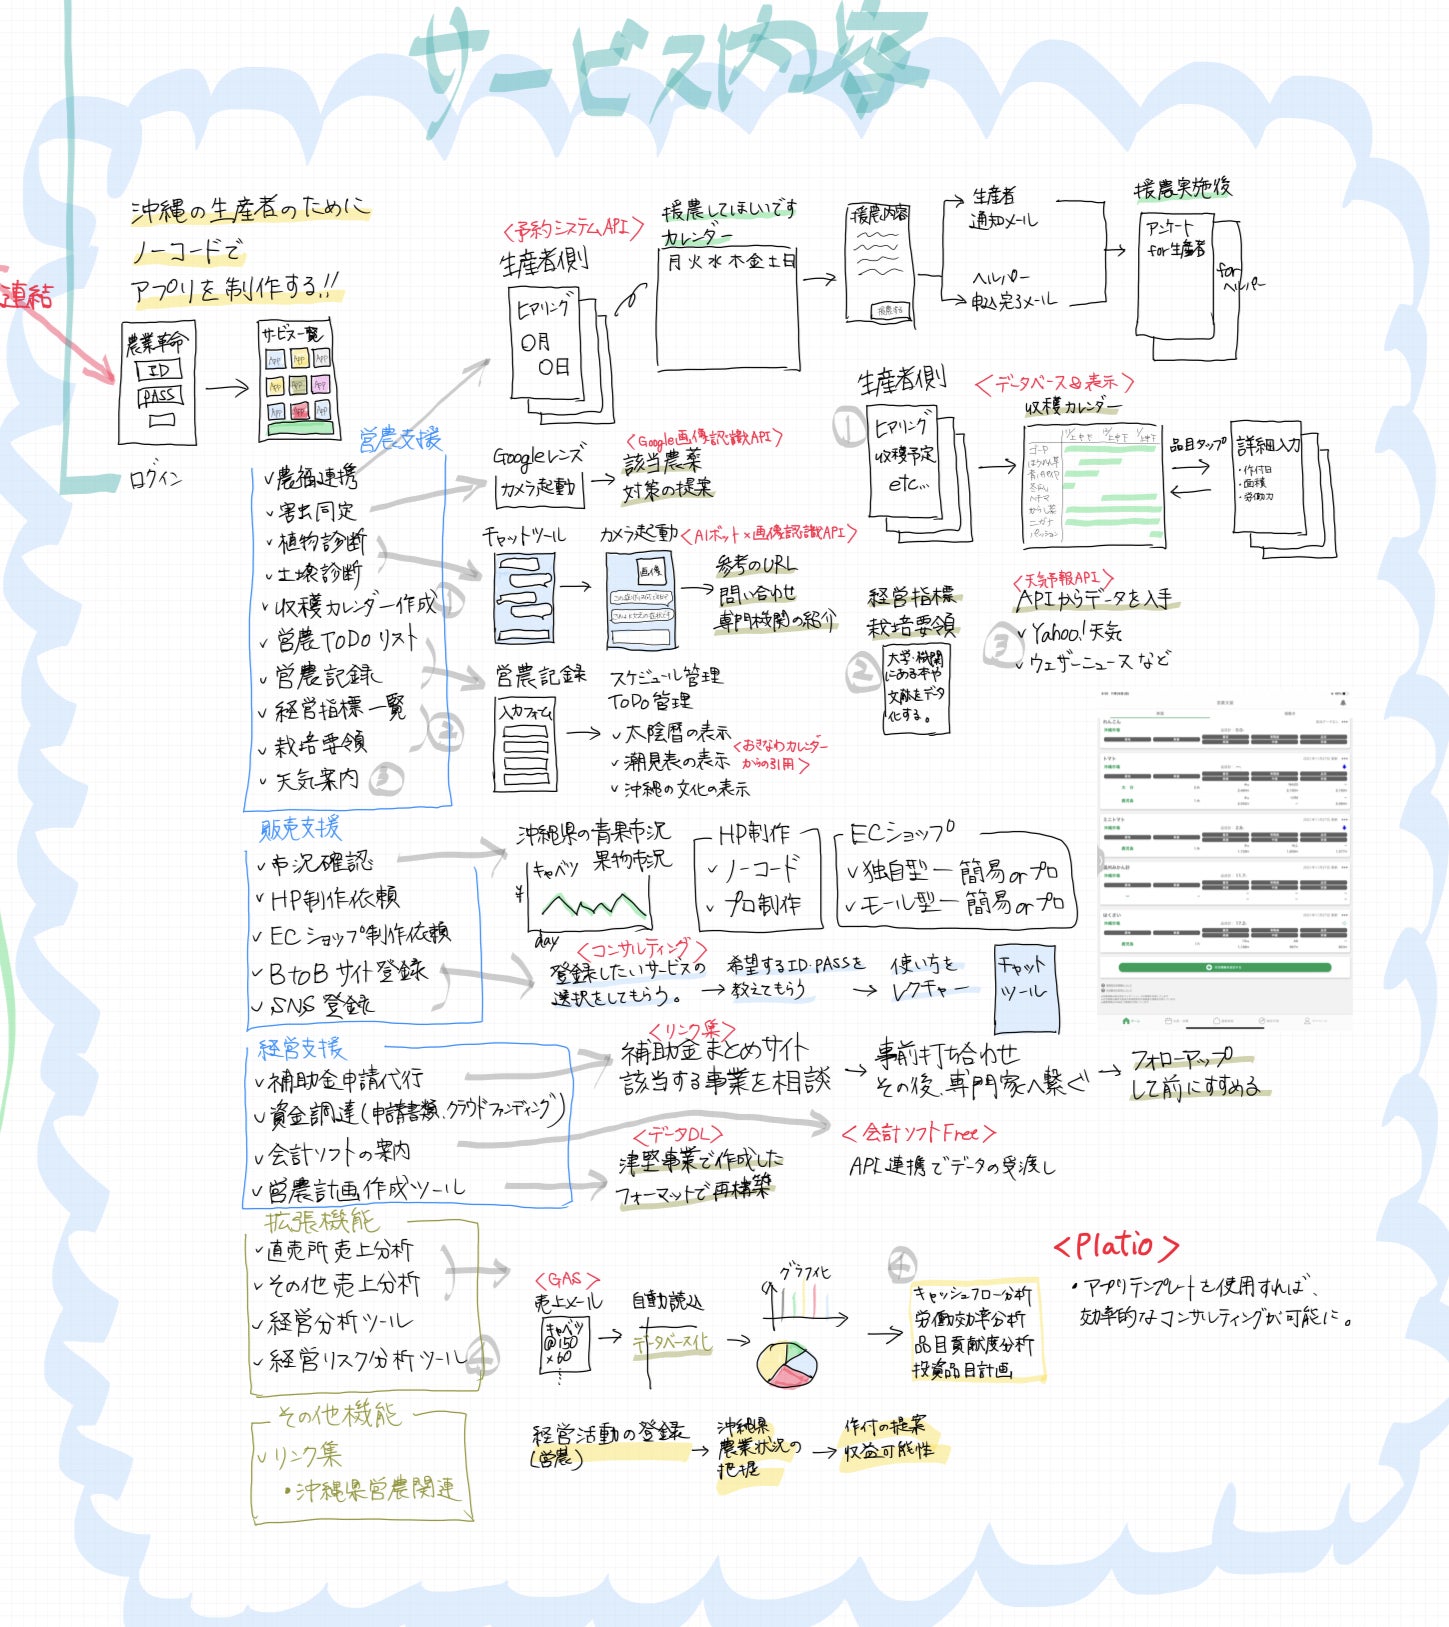 サービス内容
連結
沖縄の生産者のために
ノーコードで
アプリを制作する!!
農業革命
ID
PASS
ログイン
サービス一覧
App App App
App App App
App App App
営農支援
✓農福連携
✓害虫同定
✓植物診断
✓土壌診断
✓収穫カレンダー作成
✓営農ToDoリスト
✓営農記録
✓経営指標一覧
✓栽培要領
✓天気案内
①
②
③
<予約システムAPI>
生産者側
ヒアリング
○月
○日
援農してほしいです
カレンダー
月火水木金土日
援農内容
生産者
通知メール
ヘルパー
申込完了メール
援農実施後
アンケート
for生産者
for
ヘルパー
Googleレンズ
カメラ起動
<Google画像認識API>
該当農薬
対策の提案
①
生産者側
ヒアリング
収穫予定
etc...
<データベース&表示>
収穫カレンダー
上中下 上中下 上中下
ゴーヤ
ほうれん草
冬瓜
ヘチマ
からし菜
ニガナ
パッション
品目タップ
詳細入力
・作付日
・面積
・労働力
チャットツール
カメラ起動
画像
<AIボット×画像認識API>
参考のURL
問い合わせ
専門機関の紹介
②
経営指標
栽培要領
大学・機関
にある本や
文献をデータ
化する。
③
<天気予報API>
APIからデータを入手
✓Yahoo!天気
✓ウェザーニュースなど
営農記録
入力フォーム
スケジュール管理
ToDo管理
✓太陰暦の表示
✓潮見表の表示
✓沖縄の文化の表示
<おきなわカレンダー
からの引用>
れんこん
トマト
ミニトマト
はくさい
販売支援
✓市況確認
✓HP制作依頼
✓ECショップ制作依頼
✓BtoBサイト登録
✓SNS登録
沖縄県の青果市況
果物市況
キャベツ
¥
day
HP制作
✓ノーコード
✓プロ制作
ECショップ
✓独自型ー簡易orプロ
✓モール型ー簡易orプロ
<コンサルティング>
登録したいサービスの
選択をしてもらう。
希望するID・PASSを
教えてもらう
使い方を
レクチャー
チャット
ツール
経営支援
✓補助金申請代行
✓資金調達(申請書類、クラウドファンディング)
✓会計ソフトの案内
✓営農計画作成ツール
<リンク集>
補助金まとめサイト
該当する事業を相談
事前打ち合わせ
その後、専門家へ繋ぐ
フォローアップ
して前にすすめる
<データDL>
津堅事業で作成した
フォーマットで再構築
<会計ソフトFree>
API連携でデータの受渡し
拡張機能
✓直売所売上分析
✓その他売上分析
✓経営分析ツール
✓経営リスク分析ツール
④
<GAS>
売上メール
キャベツ
@150
×60
自動読込
データベース化
グラフ化
④
キャッシュフロー分析
労働効率分析
品目貢献度分析
投資品目計画
<Platio>
・アプリテンプレートを使用すれば、
効率的なコンサルティングが可能に。
その他機能
✓リンク集
・沖縄県営農関連
経営活動の登録
(営農)
沖縄県
農業状況の
把握
作付の提案
収益可能性